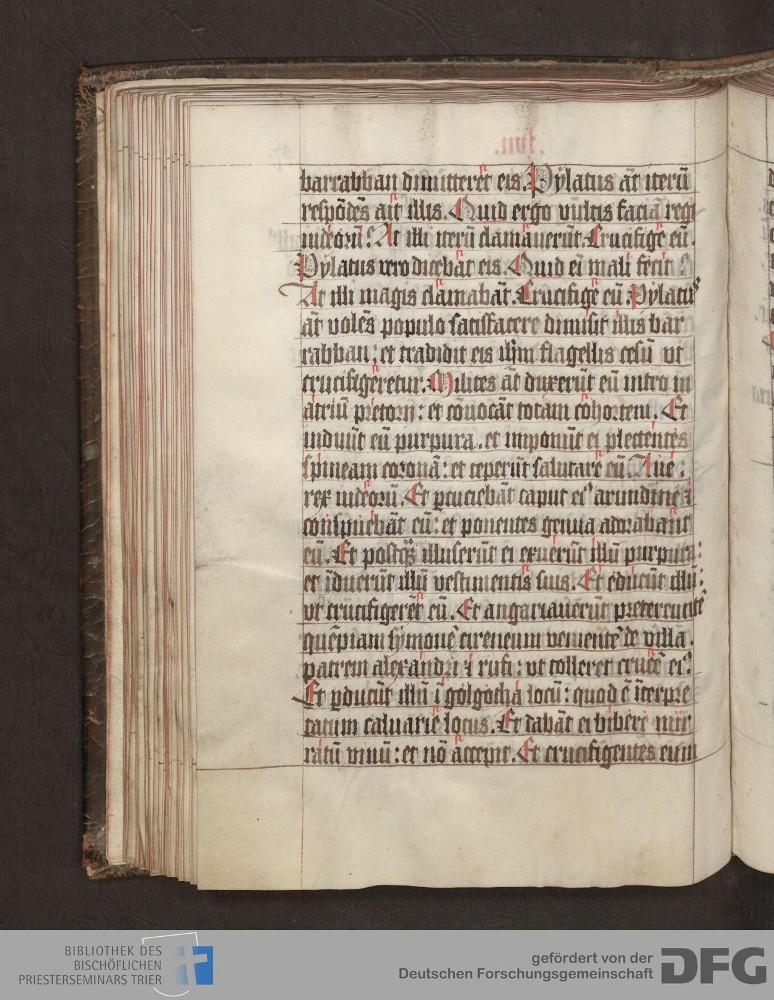 barrabban dimitteret eis. Pylatus āt iterū
respōdēs ait illis. Quid ergo vultis faciā regi
iudeorū? At illi iterū clamauerūt. Crucifige eū.
Pylatus vero dicebat eis. Quid ei mali fecit?
At illi magis clamabāt. Crucifige eū. Pylatus
āt volēs populo satisfacere dimisit illis bar
rabban: et tradidit eis ihm flagellis cesū vt
crucifigeretur. Milites āt duxerūt eū intro in
atriū pretorii: et cōuocāt totam cohortem. Et
induūt eū purpura. et imponūt ei plectentes
spineam coronā: et ceperūt salutare eū. Aue:
rex iudeorū. Et pcuciebāt caput eiꝰ arundine ⁊
conspuebāt eū: et ponentes genua adorabant
eū. Et postqȝ illuserūt ei exuerūt illū purpura:
et īduerūt illū vestimentis suis. Et educūt illū:
vt crucifigerēt eū. Et angariauerūt pretereūtē
quēpiam symonē cireneum venientē de villa.
patrem alexandri ⁊ rufi: vt tolleret crucē eiꝰ.
Et pducūt illū ī golgotha locū: quod ē īterpre
tatum caluarie locus. Et dabāt ei bibere mir
ratū vinū: et nō accepit. Et crucifigentes eum
BIBLIOTHEK DES
BISCHÖFLICHEN
PRIESTERSEMINARS TRIER
gefördert von der
Deutschen Forschungsgemeinschaft
DFG